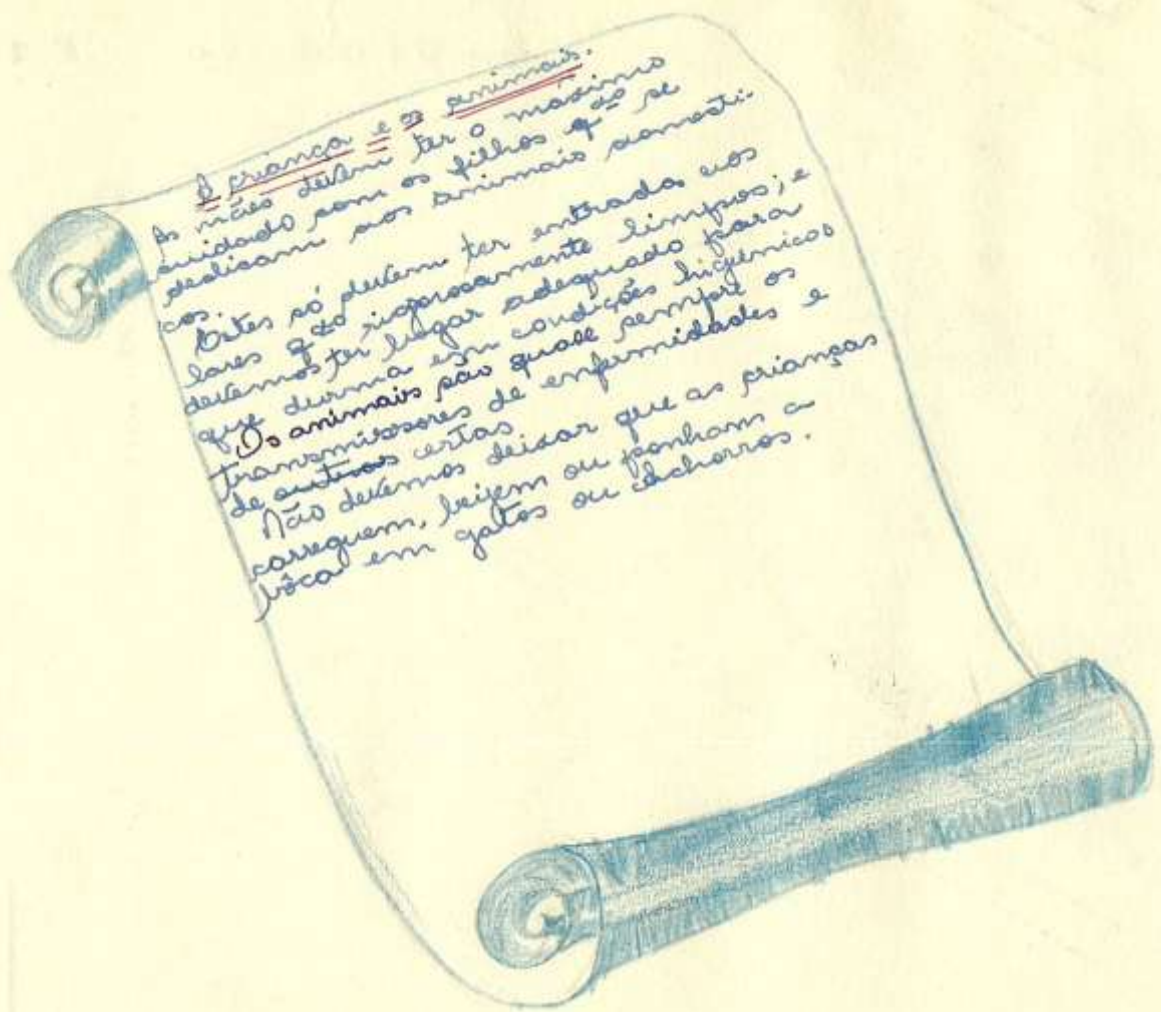 A criança e os animais.
As mães devem ter o máximo
cuidado com os filhos qdo se
dedicam aos animais domesti-
cos.
Estes só devem ter entrada nos
lares qdo rigorosamente limpos; e
devemos ter lugar adequado para
que durma em condições higienicas
Os animais são quase sempre os
transmissores de enfermidades e
de outras certas.
Não devemos deixar que as crianças
carreguem, beijem ou ponham a
bôca em gatos ou cachorros.